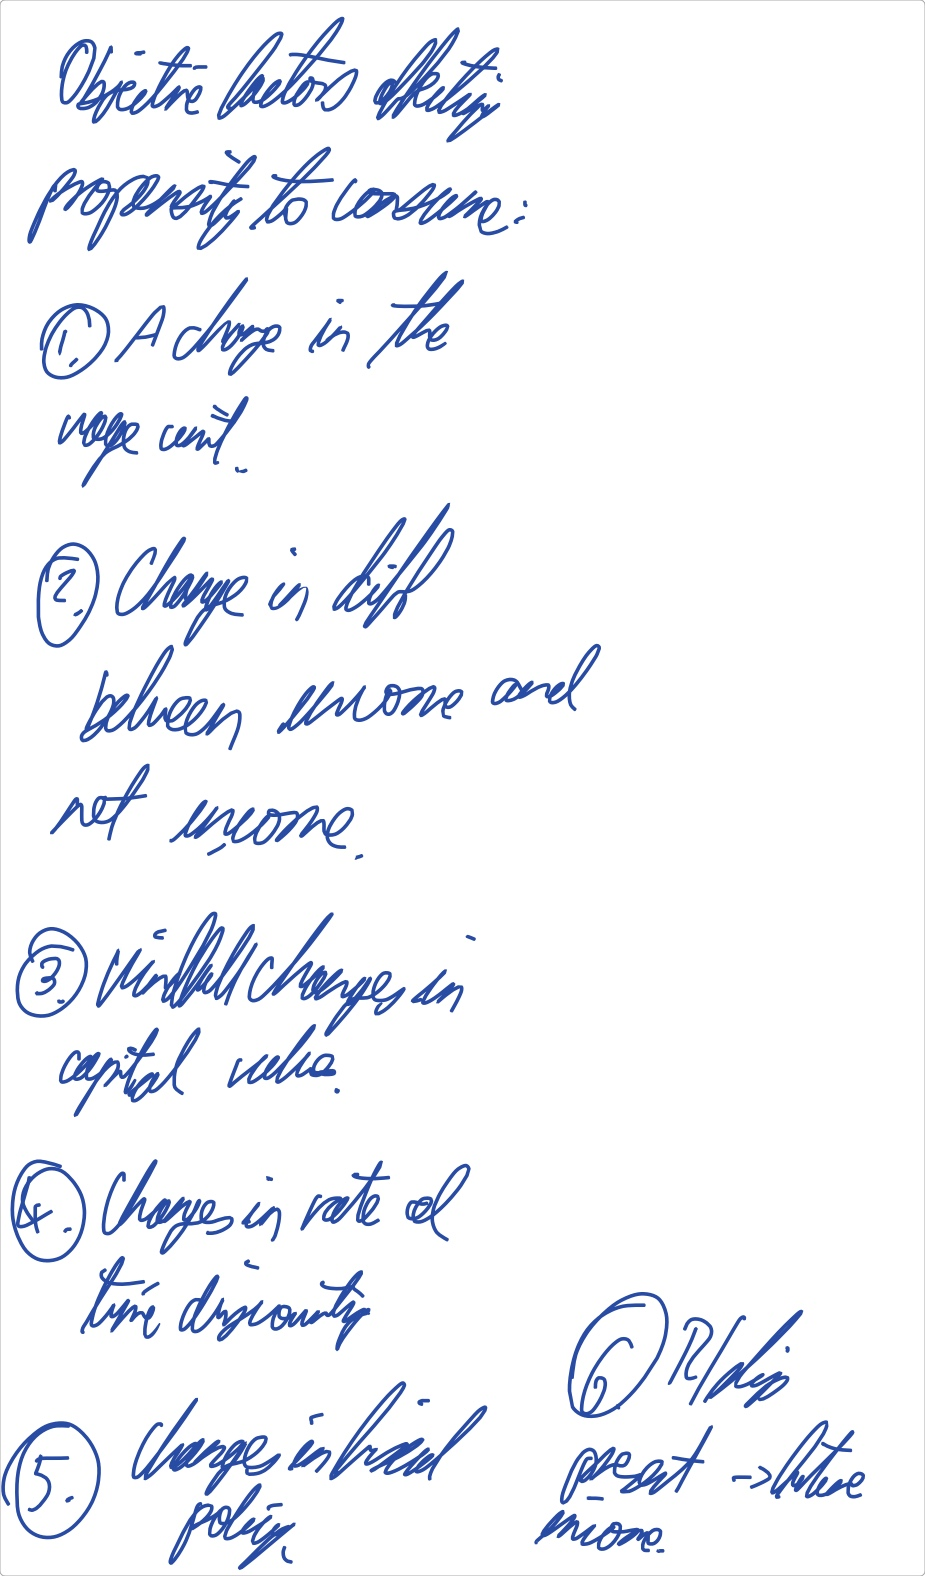 Objective factors affecting
propensity to consume:
1. A change in the
wage unit.
2. Change in diff
between income and
net income.
3. Windfall changes in
capital value.
4. Changes in rate of
time discounting
5. Changes in fiscal
policy.
6 R/ship
present -> future
income.